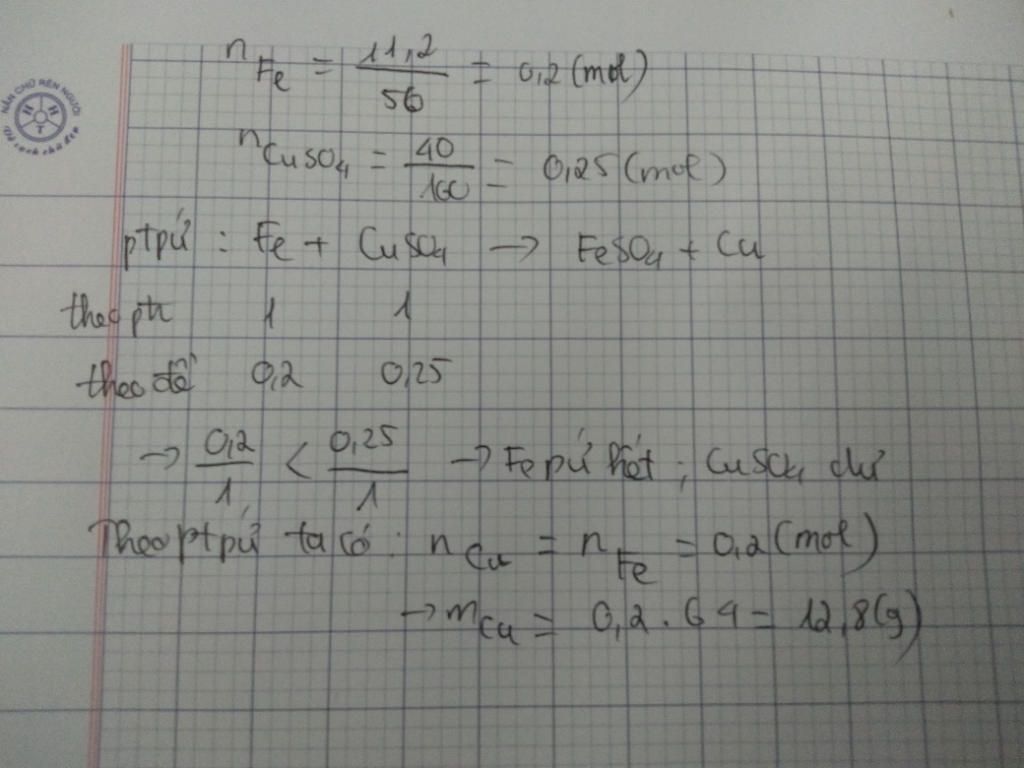 NẮN CHỮ RÈN NGƯỜI
H H T
n Fe = 11,2 / 56 = 0,2 (mol)
n CuSO4 = 40 / 160 = 0,25 (mol)
ptpứ : Fe + CuSO4 → FeSO4 + Cu
theo ptr 1 1
theo đề 0,2 0,25
→ 0,2 / 1 < 0,25 / 1 → Fe pứ hết ; CuSO4 dư
Theo ptpứ ta có : n Cu = n Fe = 0,2 (mol)
→ m Cu = 0,2 . 64 = 12,8 (g)